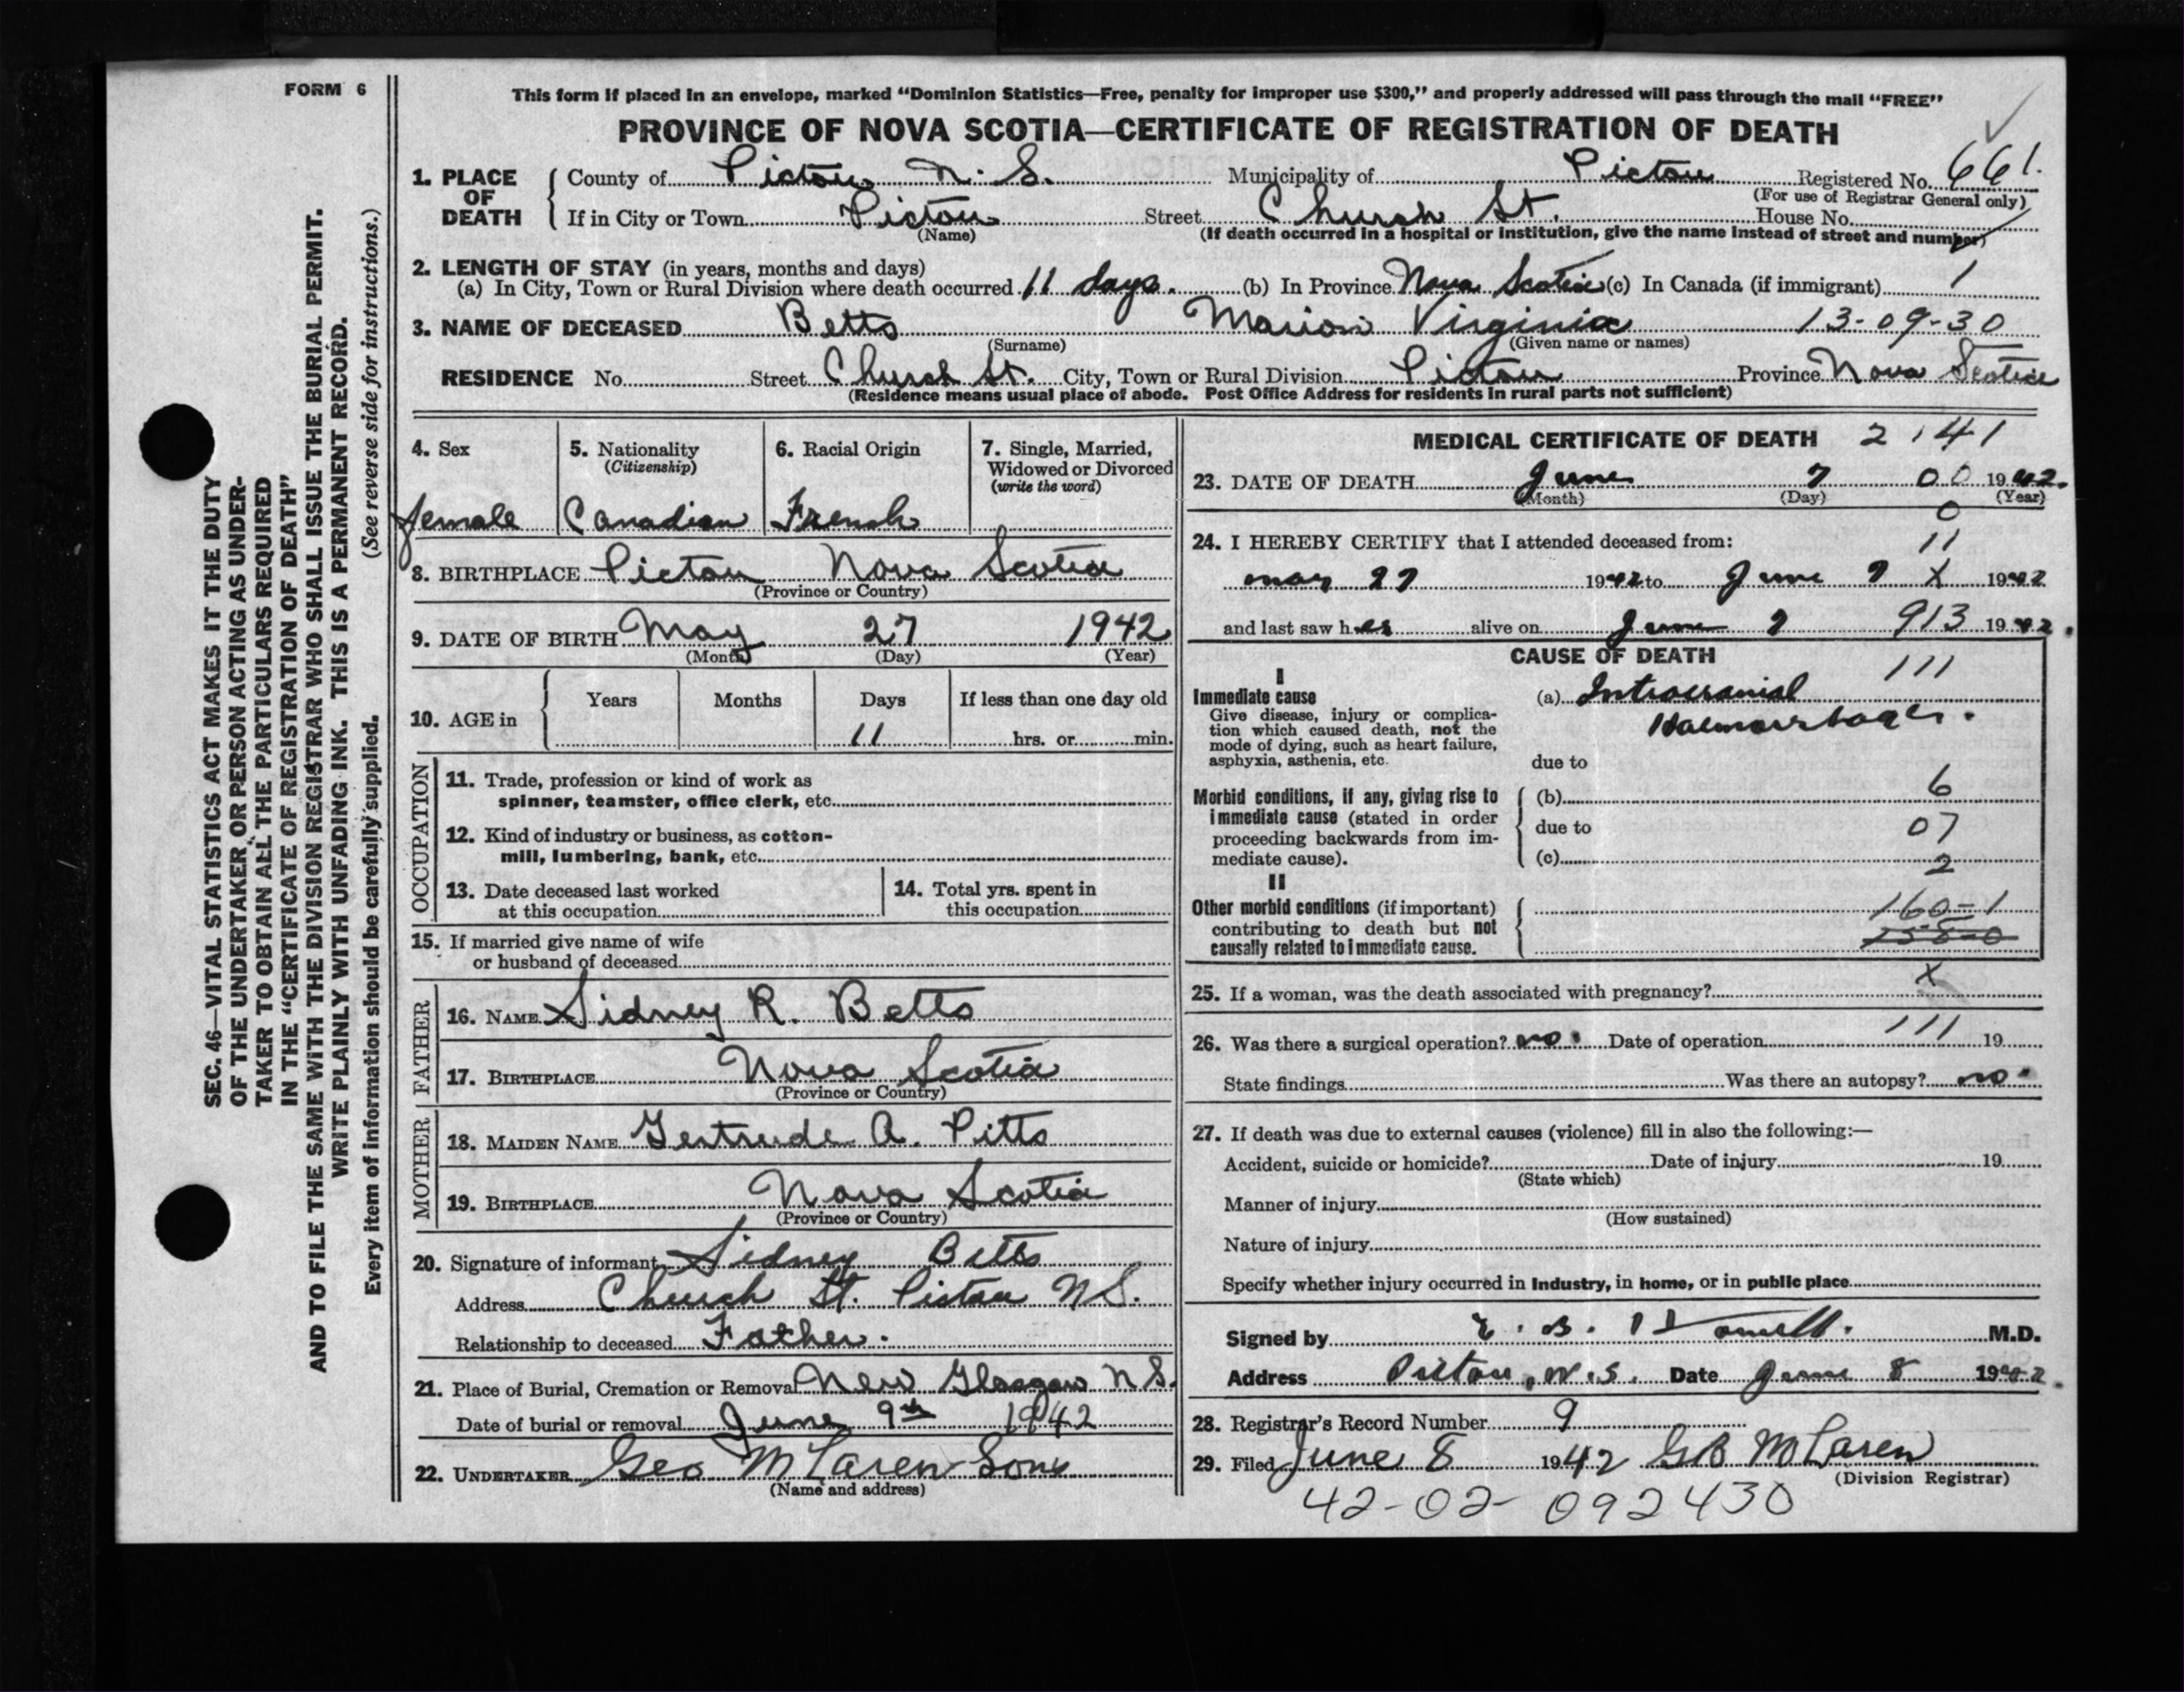 FORM 6
SEC. 46—VITAL STATISTICS ACT MAKES IT THE DUTY
OF THE UNDERTAKER OR PERSON ACTING AS UNDER-
TAKER TO OBTAIN ALL THE PARTICULARS REQUIRED
IN THE "CERTIFICATE OF REGISTRATION OF DEATH"
AND TO FILE THE SAME WITH THE DIVISION REGISTRAR WHO SHALL ISSUE THE BURIAL PERMIT.
WRITE PLAINLY WITH UNFADING INK. THIS IS A PERMANENT RECORD.
Every item of information should be carefully supplied. (See reverse side for instructions.)
This form if placed in an envelope, marked "Dominion Statistics—Free, penalty for improper use $300," and properly addressed will pass through the mail "FREE"
PROVINCE OF NOVA SCOTIA—CERTIFICATE OF REGISTRATION OF DEATH
1. PLACE OF DEATH County of Pictou N. S. Municipality of Pictou Registered No. 661.
(For use of Registrar General only)
If in City or Town Pictou Street Church St. House No.
(Name) (If death occurred in a hospital or institution, give the name instead of street and number)
2. LENGTH OF STAY (in years, months and days)
(a) In City, Town or Rural Division where death occurred 11 days. (b) In Province Nova Scotia (c) In Canada (if immigrant) 1
3. NAME OF DECEASED Betts Marion Virginia 13-09-30
(Surname) (Given name or names)
RESIDENCE No. Street Church St. City, Town or Rural Division Pictou Province Nova Scotia
(Residence means usual place of abode. Post Office Address for residents in rural parts not sufficient)
4. Sex 5. Nationality 6. Racial Origin 7. Single, Married,
(Citizenship) Widowed or Divorced
(write the word)
female Canadian French
8. BIRTHPLACE Pictou Nova Scotia
(Province or Country)
9. DATE OF BIRTH May 27 1942
(Month) (Day) (Year)
10. AGE in Years Months Days If less than one day old
11 hrs. or min.
OCCUPATION
11. Trade, profession or kind of work as
spinner, teamster, office clerk, etc.
12. Kind of industry or business, as cotton-
mill, lumbering, bank, etc.
13. Date deceased last worked
at this occupation
14. Total yrs. spent in
this occupation
15. If married give name of wife
or husband of deceased
FATHER
16. NAME Sidney R. Betts
17. BIRTHPLACE Nova Scotia
(Province or Country)
MOTHER
18. MAIDEN NAME Gertrude A. Pitts
19. BIRTHPLACE Nova Scotia
(Province or Country)
20. Signature of informant Sidney Betts
Address Church St. Pictou N.S.
Relationship to deceased Father.
21. Place of Burial, Cremation or Removal New Glasgow N.S.
Date of burial or removal June 9th 1942
22. UNDERTAKER Geo McLaren Sons
(Name and address)
MEDICAL CERTIFICATE OF DEATH 2141
23. DATE OF DEATH June 7 00 1942.
(Month) (Day) (Year)
0
24. I HEREBY CERTIFY that I attended deceased from: 11
May 27 1942 to June 7 X 1942
and last saw her alive on June 7 913 1942.
CAUSE OF DEATH 111
I
Immediate cause (a) Intracranial
Haemorrhage.
Give disease, injury or complica-
tion which caused death, not the
mode of dying, such as heart failure,
asphyxia, asthenia, etc. due to
Morbid conditions, if any, giving rise to (b) 6
immediate cause (stated in order due to 07
proceeding backwards from im-
mediate cause). (c) 2
II
Other morbid conditions (if important) 160-1
contributing to death but not
causally related to immediate cause.
25. If a woman, was the death associated with pregnancy? X
26. Was there a surgical operation? no. Date of operation 111 19
State findings Was there an autopsy? no.
27. If death was due to external causes (violence) fill in also the following:—
Accident, suicide or homicide? Date of injury 19
(State which)
Manner of injury
(How sustained)
Nature of injury
Specify whether injury occurred in Industry, in home, or in public place
Signed by E. B. M.D.
Address Pictou, N.S. Date June 8 1942.
28. Registrar's Record Number 9
29. Filed June 8 1942 GB McLaren
(Division Registrar)
42-02-092430